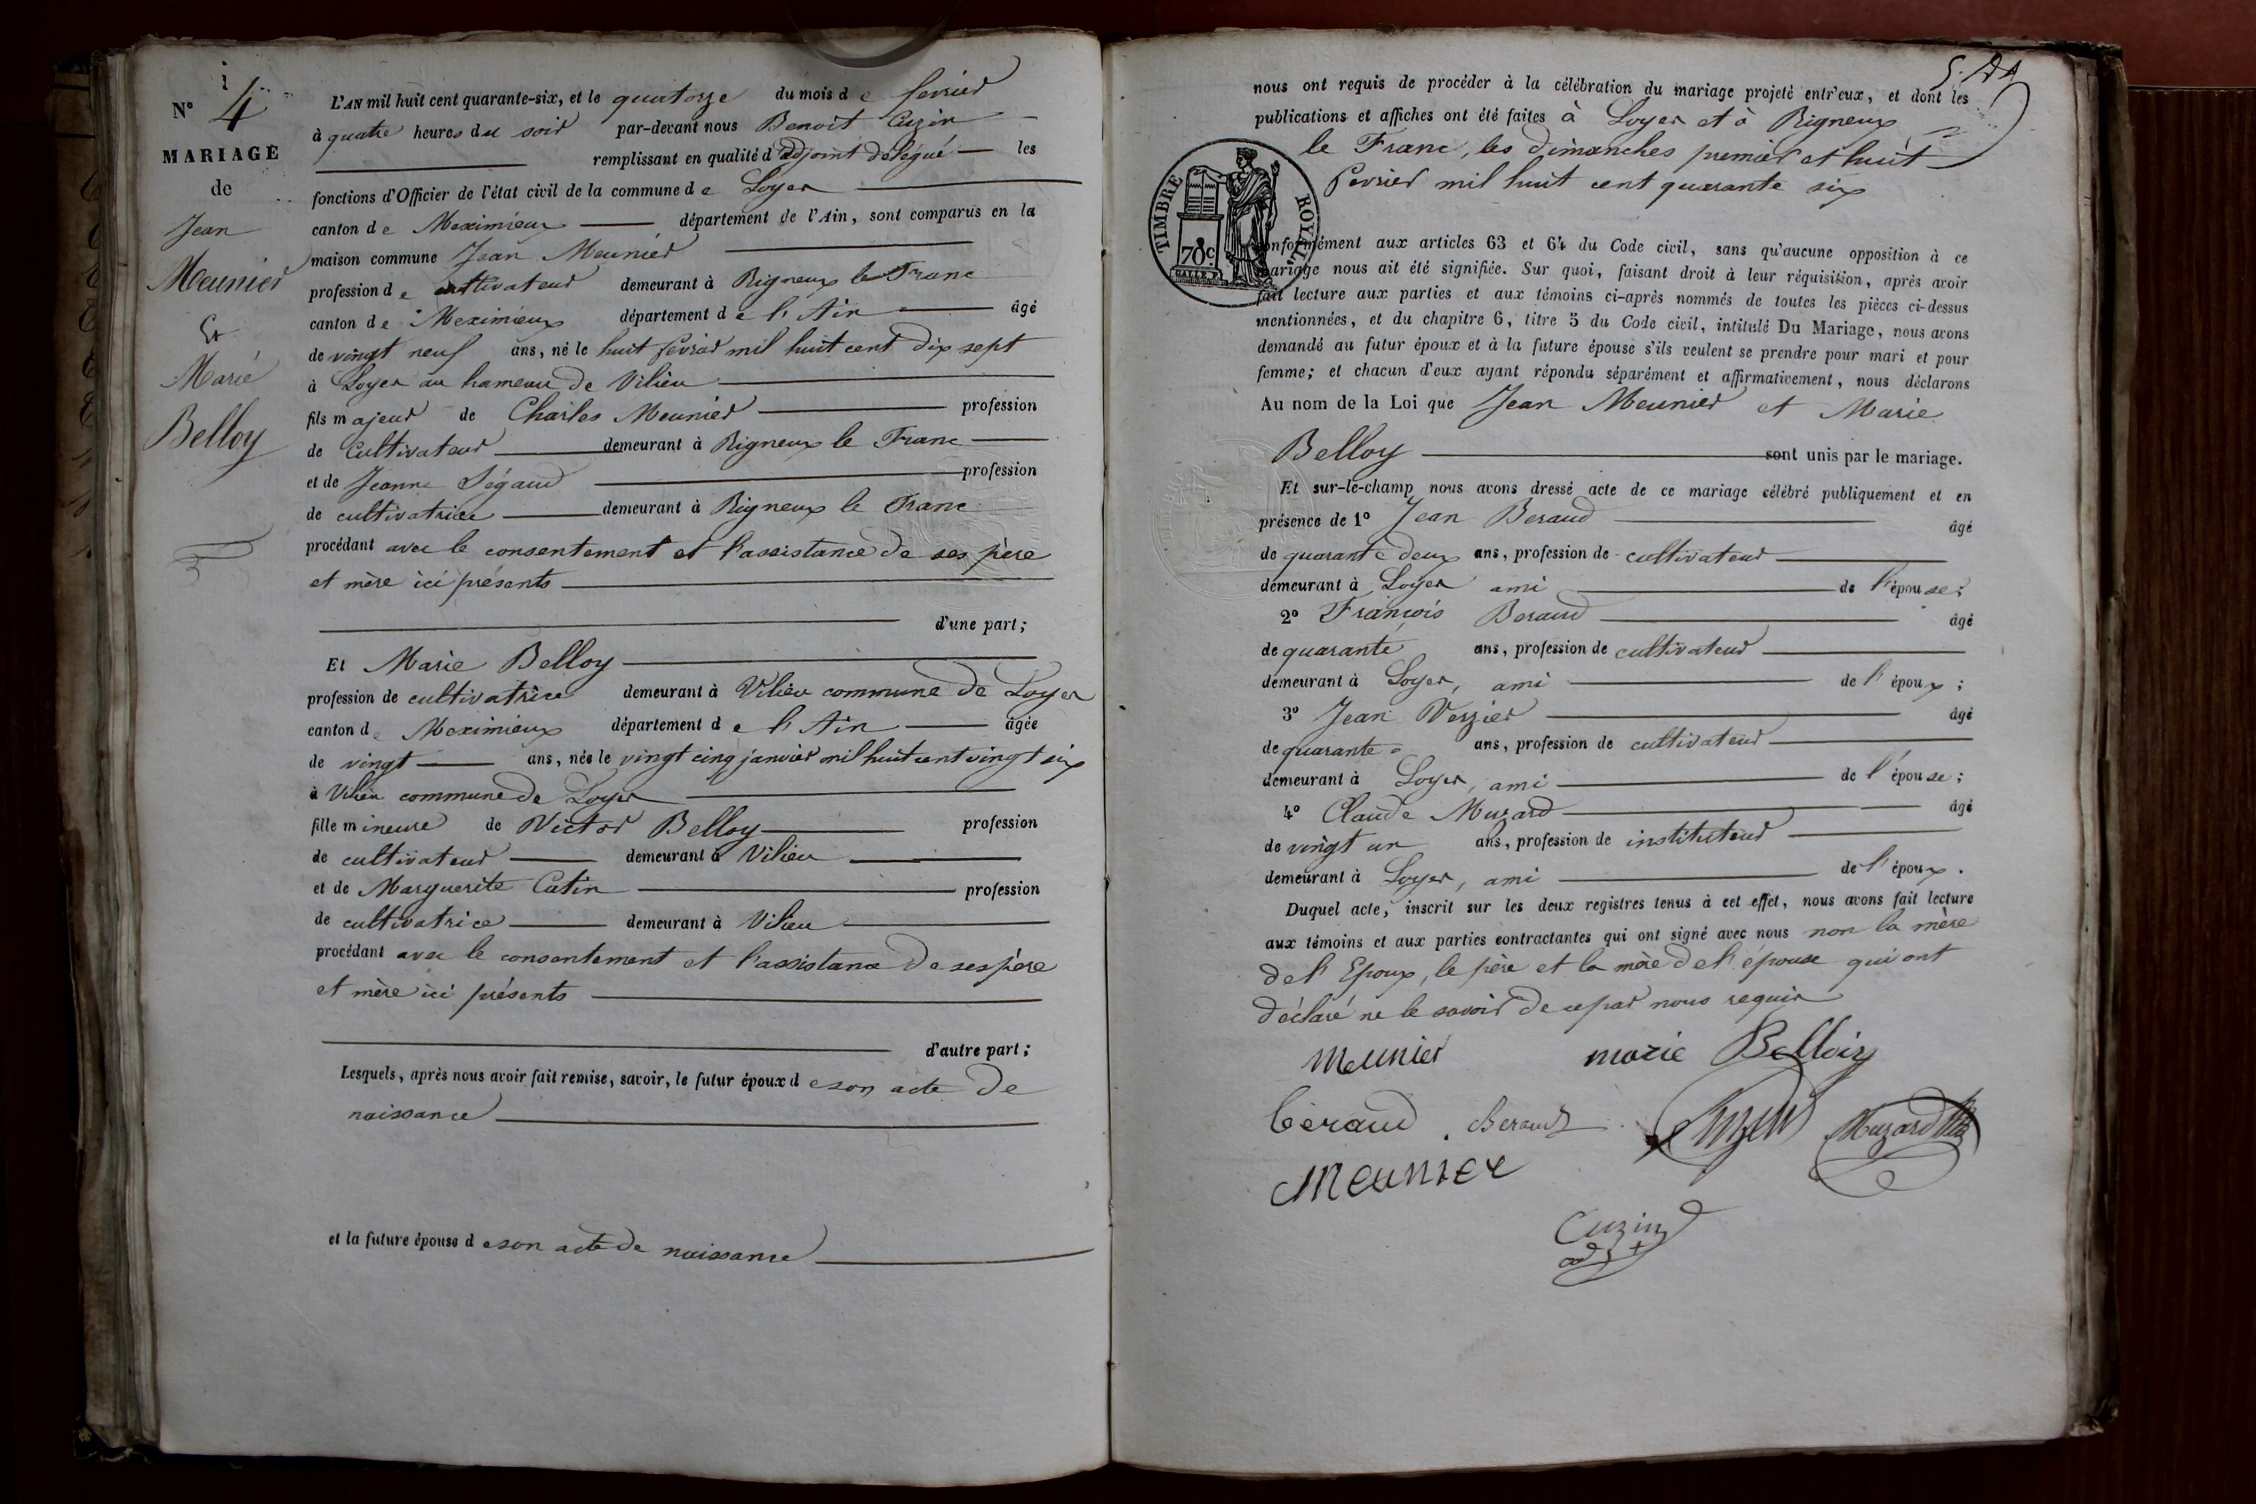 N° 4
MARIAGE
de
Jean
Meunier
Et
Marie
Belloy
L'AN mil huit cent quarante-six, et le quatorze du mois de fevrier
à quatre heures du soir par-devant nous Benoit Cuzin
remplissant en qualité d'adjoint délégué les
fonctions d'Officier de l'état civil de la commune de Loyes
canton de Meximieux département de l'Ain, sont comparus en la
maison commune Jean Meunier
profession de cultivateur demeurant à Rigneux le Franc
canton de Meximieux département de l'Ain âgé
de vingt neuf ans, né le huit fevrier mil huit cent dix sept
à Loyes au hameau de Vilieu
fils majeur de Charles Meunier profession
de Cultivateur demeurant à Rigneux le Franc
et de Jeanne Ségaud profession
de cultivatrice demeurant à Rigneux le Franc
procédant avec le consentement et l'assistance de ses père
et mère ici présents
d'une part;
Et Marie Belloy
profession de cultivatrice demeurant à Vilieu commune de Loyes
canton de Meximieux département de l'Ain âgée
de vingt ans, née le vingt cinq janvier mil huit cent vingt six
à Vilieu commune de Loyes
fille mineure de Victor Belloy profession
de cultivateur demeurant à Vilieu
et de Marguerite Catin profession
de cultivatrice demeurant à Vilieu
procédant avec le consentement et l'assistance de ses père
et mère ici présents
d'autre part;
Lesquels, après nous avoir fait remise, savoir, le futur époux de son acte de
naissance
et la future épouse de son acte de naissance
nous ont requis de procéder à la célébration du mariage projeté entr'eux, et dont les
publications et affiches ont été faites à Loyes et à Rigneux
le Franc, les dimanches premier et huit
fevrier mil huit cent quarante six
TIMBRE ROYAL
70c.
conformément aux articles 63 et 64 du Code civil, sans qu'aucune opposition à ce
mariage nous ait été signifiée. Sur quoi, faisant droit à leur réquisition, après avoir
fait lecture aux parties et aux témoins ci-après nommés de toutes les pièces ci-dessus
mentionnées, et du chapitre 6, titre 5 du Code civil, intitulé Du Mariage, nous avons
demandé au futur époux et à la future épouse s'ils veulent se prendre pour mari et pour
femme; et chacun d'eux ayant répondu séparément et affirmativement, nous déclarons
Au nom de la Loi que Jean Meunier et Marie
Belloy sont unis par le mariage.
Et sur-le-champ nous avons dressé acte de ce mariage célébré publiquement et en
présence de 1° Jean Beraud âgé
de quarante deux ans, profession de cultivateur
demeurant à Loyes ami de l'épouse;
2° François Beraud âgé
de quarante ans, profession de cultivateur
demeurant à Loyes, ami de l'époux;
3° Jean Verzier âgé
de quarante ans, profession de cultivateur
demeurant à Loyes, ami de l'épouse;
4° Claude Muzard âgé
de vingt un ans, profession de instituteur
demeurant à Loyes, ami de l'époux.
Duquel acte, inscrit sur les deux registres tenus à cet effet, nous avons fait lecture
aux témoins et aux parties contractantes qui ont signé avec nous non la mère
de l'Epoux, le père et la mère de l'épouse qui ont
déclaré ne le savoir de ce par nous requis
Meunier marie Belloiy
béraud Beraud Muzard
Meunier
Cuzin
adjt